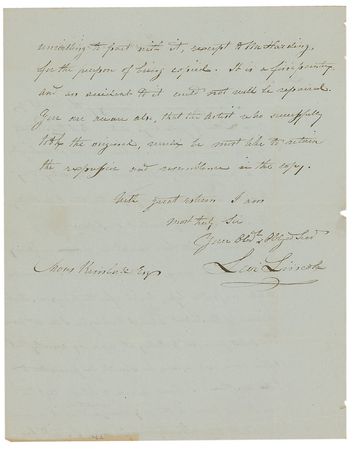 unwilling to part with it, except to Mr Harding,
for the purpose of being copied. It is a fine painting
and an accident to it could not well be repaired.
You are aware also, that the Artist who successfully
took the original, would be most like to retain
the expression and resemblance in the copy.
With great esteem I am
most truly, Sir
Your Obdt & Obligd Servt
Levi Lincoln
Esq